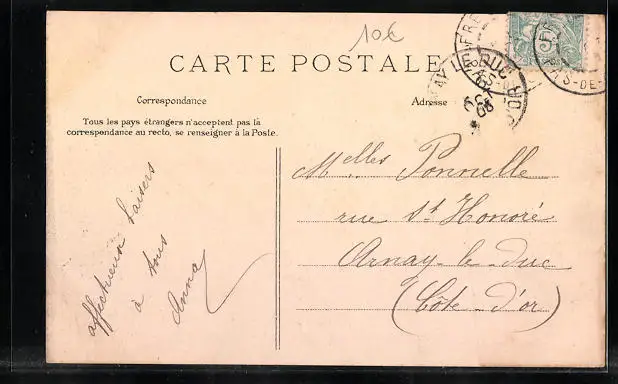 10€
CARTE POSTALE
Correspondance
Adresse
Tous les pays étrangers n'acceptent pas la
correspondance au recto, se renseigner à la Poste.
affectueux baisers
à tous
Anna
Melles Ponnelle
rue St Honoré
Arnay-le-Duc
(Côte-d'or)